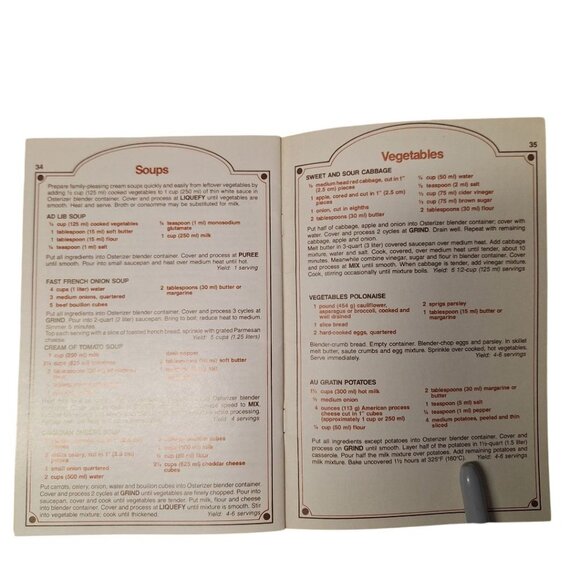 34
Soups
Prepare family-pleasing cream soups quickly and easily from leftover vegetables by
adding ½ cup (125 ml) cooked vegetables to 1 cup (250 ml) of thin white sauce in
Osterizer blender container. Cover and process at LIQUEFY until smooth.
Heat and serve. Broth or bouillon may be substituted for cream.
AD LIB SOUP
½ cup (125 ml) cooked vegetables
1 tablespoon (15 ml) butter
1 tablespoon (15 ml) flour
¼ teaspoon (1 ml) salt
¼ teaspoon (1 ml) monosodium
glutamate
1 cup (250 ml) milk
Put all ingredients into Osterizer blender container. Cover and process at PUREE
until smooth. Pour into small saucepan and heat over medium heat until hot.
Yield: 1 serving
FAST FRENCH ONION SOUP
4 cups (1 liter) water
3 medium onions, quartered
5 beef bouillon cubes
2 tablespoons (30 ml) butter or
margarine
Put all ingredients into Osterizer blender container. Cover and process 3 cycles at
GRIND. Pour into 2-quart (2 liter) saucepan. Bring to boil; reduce heat to medium.
Simmer 5 minutes.
Top each serving with a slice of toasted french bread, sprinkle with grated Parmesan
cheese.
Yield: 5 cups (1.25 liters)
CREAM OF TOMATO SOUP
1 cup (250 ml) milk
dash pepper
soft butter
Osterizer blender
speed to MIX
processing.
Yield: 4 servings
1 small onion quartered
2 cups (500 ml) water
2½ cups (625 ml) cheddar cheese
cubes
Put carrots, celery, onion, water and bouillon cubes into Osterizer blender container.
Cover and process 2 cycles at GRIND until vegetables are finely chopped. Pour into
saucepan, cover and cook until vegetables are tender. Put milk, flour and cheese
into blender container. Cover and process at LIQUEFY until mixture is smooth. Stir
into vegetable mixture; cook until thickened.
Yield: 4-6 servings
35
Vegetables
SWEET AND SOUR CABBAGE
½ medium head red cabbage, cut in 1"
(2.5 cm) pieces
1 apple, cored and cut in 1" (2.5 cm)
pieces
1 onion, cut in eighths
2 tablespoons (30 ml) butter
¼ cup (50 ml) water
½ teaspoon (2 ml) salt
⅓ cup (75 ml) cider vinegar
⅓ cup (75 ml) brown sugar
2 tablespoons (30 ml) flour
Put half of cabbage, apple and onion into Osterizer container; cover with
water. Cover and process 2 cycles at GRIND. Drain well. Repeat with remaining
cabbage, apple and onion.
Melt butter in 3-quart (3 liter) covered saucepan over medium heat. Add cabbage
mixture, water and salt. Cook, covered, over medium heat until tender, about 10
minutes. Meanwhile combine vinegar, sugar and flour in blender container. Cover
and process at MIX until smooth. When cabbage is tender, add vinegar mixture.
Cook, stirring occasionally until mixture boils.
Yield: 5 1/2-cup (125 ml) servings
VEGETABLES POLONAISE
1 pound (454 g) cauliflower,
asparagus or broccoli, cooked and
well drained
1 slice bread
2 hard-cooked eggs, quartered
2 sprigs parsley
1 tablespoon (15 ml) butter or
margarine
Blender-crumb bread. Empty container. Blender-chop eggs and parsley. In skillet
melt butter, saute crumbs and egg mixture. Sprinkle over cooked, hot vegetables.
Serve immediately.
Yield: 4-6 servings
AU GRATIN POTATOES
1¼ cups (300 ml) hot milk
½ medium onion
4 ounces (113 g) American process
cheese cut in 1" cubes
(approximately 1 cup or 250 ml)
¼ cup (50 ml) flour
2 tablespoons (30 ml) margarine or
butter
1 teaspoon (5 ml) salt
¼ teaspoon (1 ml) pepper
4 medium potatoes, peeled and thin
sliced
Put all ingredients except potatoes into Osterizer blender container. Cover and
process on GRIND until smooth. Layer half of the potatoes in 1½-quart (1.5 liter)
casserole. Pour half the milk mixture over potatoes. Add remaining potatoes and
milk mixture. Bake uncovered 1½ hours at 325°F (160°C).
Yield: 4-6 servings